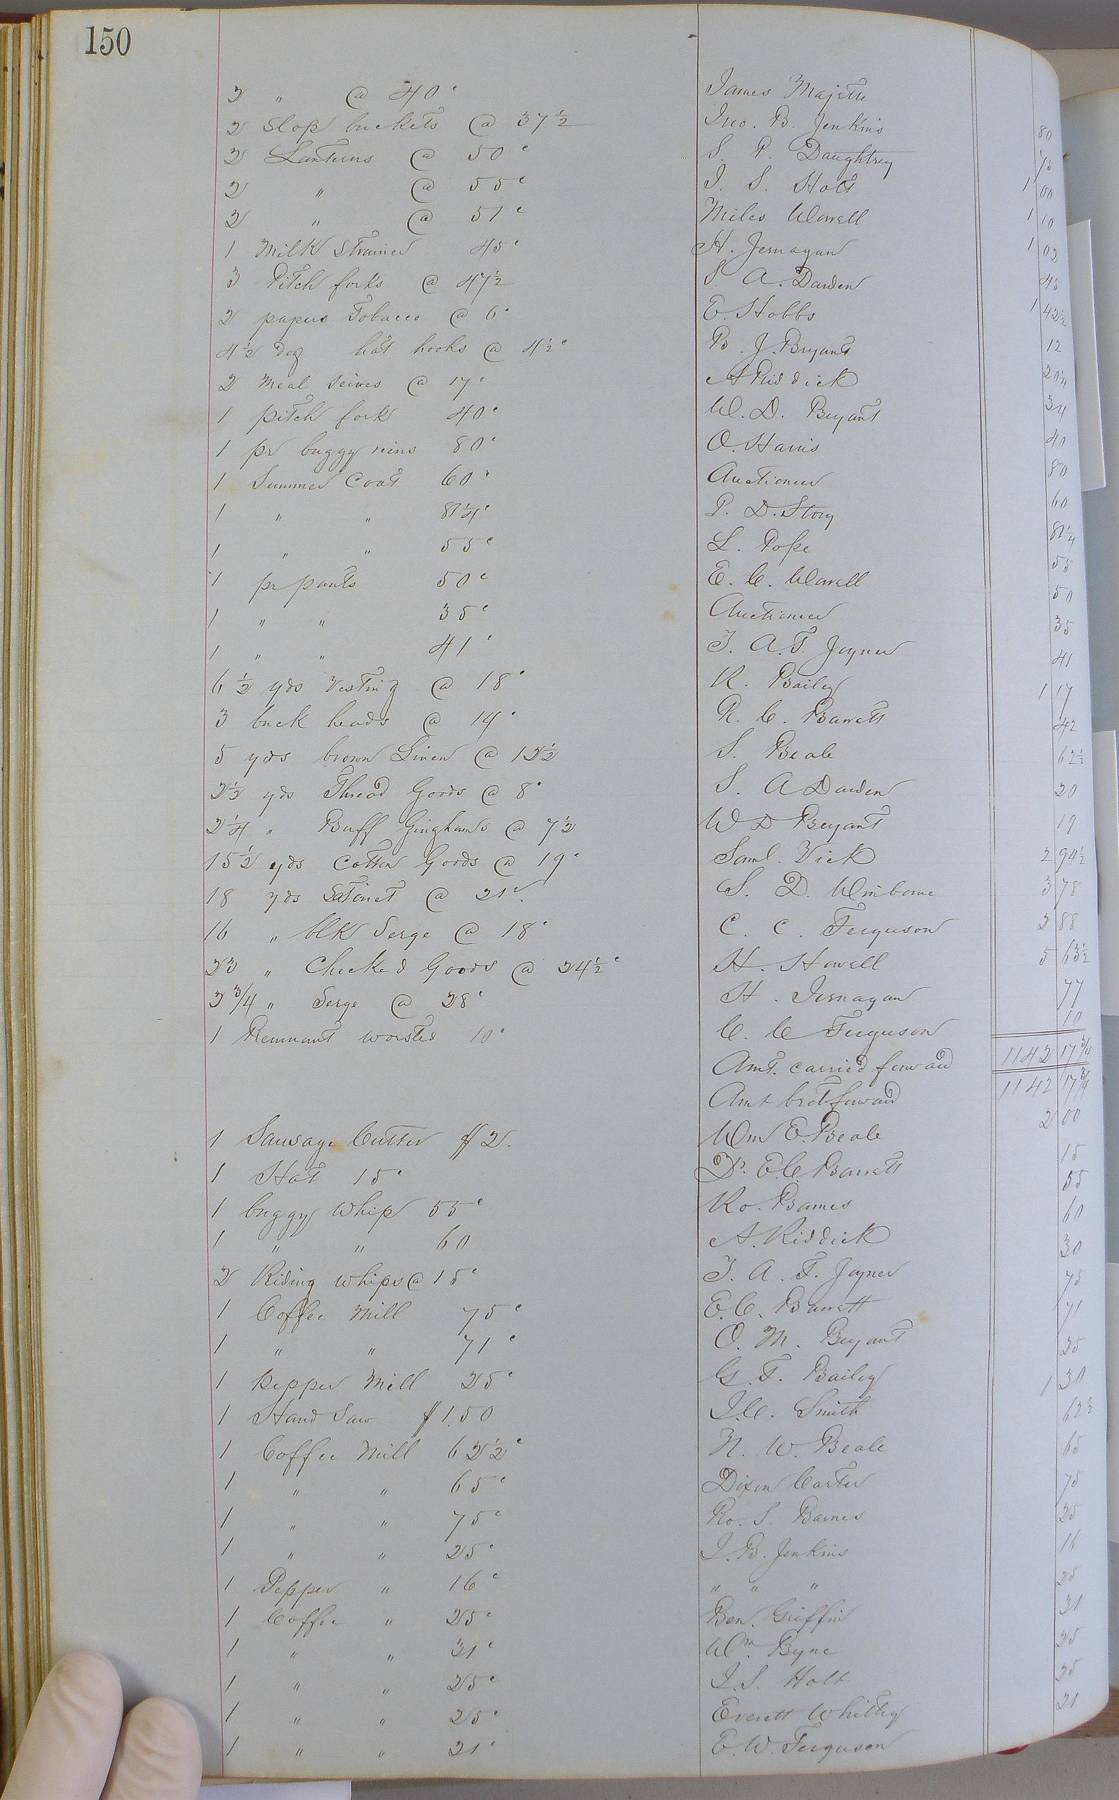 150
2 " @ 40c James Majette 80
2 Slop buckets @ 37½ Jno. B. Jenkins 75
2 Lanterns @ 50c S. P. Daughtrey 1 00
2 " @ 55c J. S. Holt 1 10
2 " @ 51c Miles Worrell 1 02
1 Milk Strainer 45c H. Jernagan 45
3 Pitch forks @ 47½ S. A. Darden 1 42½
2 papers Tobacco @ 6c E. Hobbs 12
4½ Doz hat hooks @ 4½c B. J. Bryant 20¼
2 Meal Seives @ 17c A Riddick 34
1 pitch fork 40c W. D. Bryant 40
1 pr buggy reins 80c O. Harris 80
1 Summer Coat 60c Auctioneer 60
1 " " 81¼c P. D. Story 81¼
1 " " 55c L. Pope 55
1 pr pants 50c E. C. Worrell 50
1 " " 35c Auctioneer 35
1 " " 41c T. A. T. Joyner 41
6½ yds Vesting @ 18c R. Bailey 1 17
3 buck heads @ 14c R. C. Barrett 42
5 yds brown Linen @ 12½ S. Beale 62½
2½ yds Thread Goods @ 8c S. A Darden 20
2¼ " Buff Ginghams @ 7½ W D Bryant 19
15½ yds Cotton Goods @ 19c Saml. Vick 2 94½
18 yds Satinet @ 21c S. D. Winborne 3 78
16 " blk Serge @ 18c C. C. Ferguson 2 88
23 " Checked Goods @ 24½c H. Howell 5 63½
2¾ " Serge @ 28c H. Jernagan 77
1 Remnant worsted 10c C. C Ferguson 10
Amt. carried forward 1142 17¾
Amt brot forward 1142 17¾
1 Sausage Cutter $2. Wm E. Beale 2 00
1 Hat 15c Dr. E. C. Barrett 15
1 buggy Whip 55c Ro. Barnes 55
1 " " 60 A. Riddick 60
2 Riding Whips @ 15c T. A. T. Joyner 30
1 Coffee Mill 75c E. C. Barrett 75
1 " " 71c O. M. Bryant 71
1 pepper Mill 25c G. T. Bailey 25
1 Hand Saw $1.50 J. C. Smith 1 50
1 Coffee Mill 62½c N. W. Beale 62½
1 " " 65c Dixon Carter 65
1 " " 75c Ro. S. Barnes 75
1 " " 25c J. B. Jenkins 25
1 Pepper " 16c " " " 16
1 Coffee " 25c Ben. Griffin 25
1 " " 31c Wm. Byne 31
1 " " 25c J. S. Holt 25
1 " " 25c Everett Whitley 25
1 " " 21c E. W. Ferguson 21